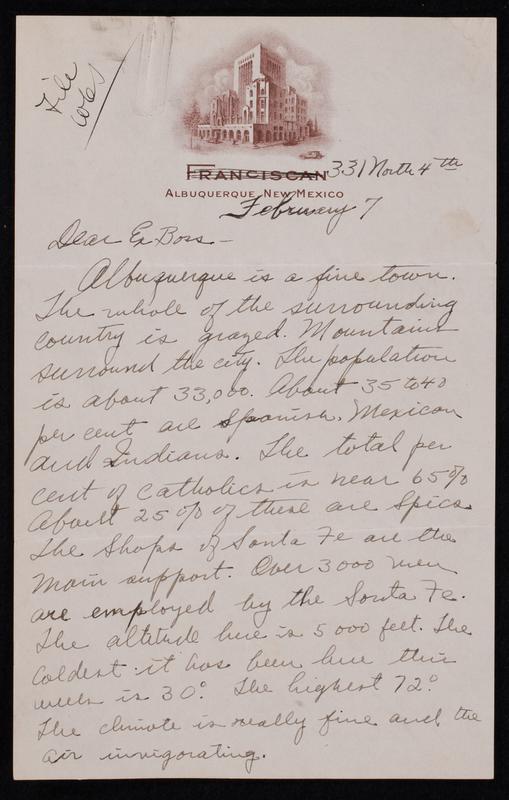 File
Franciscan 331 North 4th
Albuquerque, New Mexico
February 7
Dear Ex Boss -
Albuquerque is a fine town.
The whole of the surrounding
country is grazed. Mountains
surround the city. The population
is about 33,000. About 35 to 40
per cent are Spanish, Mexican
and Indians. The total per
cent of Catholics is near 65%
About 25% of these are Spics.
The Shops of Santa Fe are the
main support. Over 3000 men
are employed by the Santa Fe.
The altitude here is 5000 feet. The
coldest it has been here this
week is 30°. The highest 72°.
The climate is really fine and the
air invigorating.